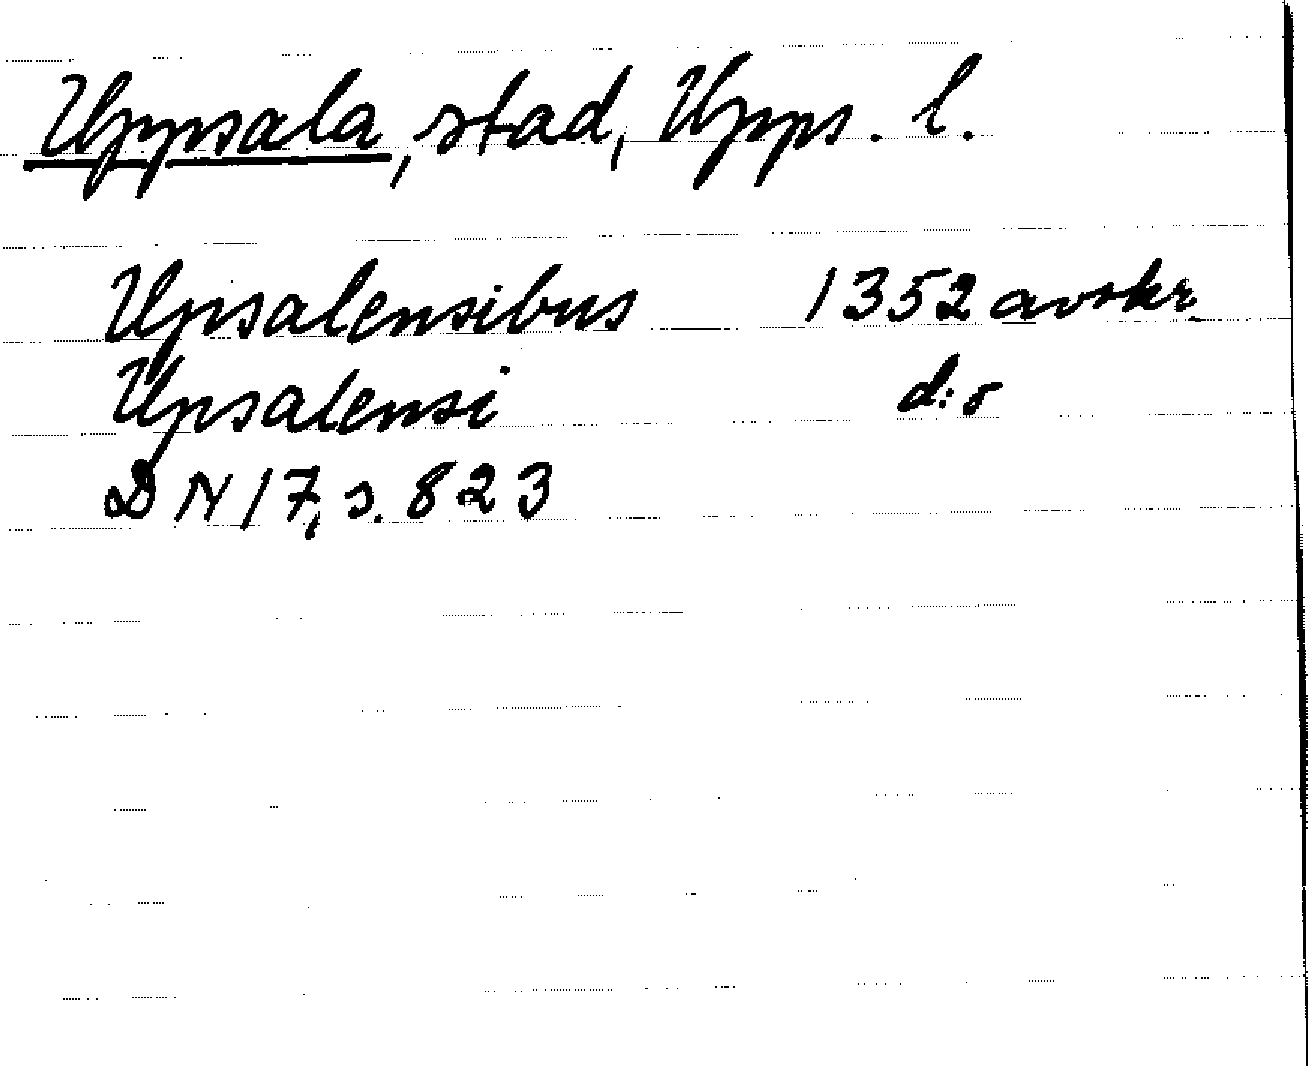 Uppsala, stad, Upps. l.
Upsalensibus 1352 avskr.
Upsalensi d:o
DN 17, s. 823